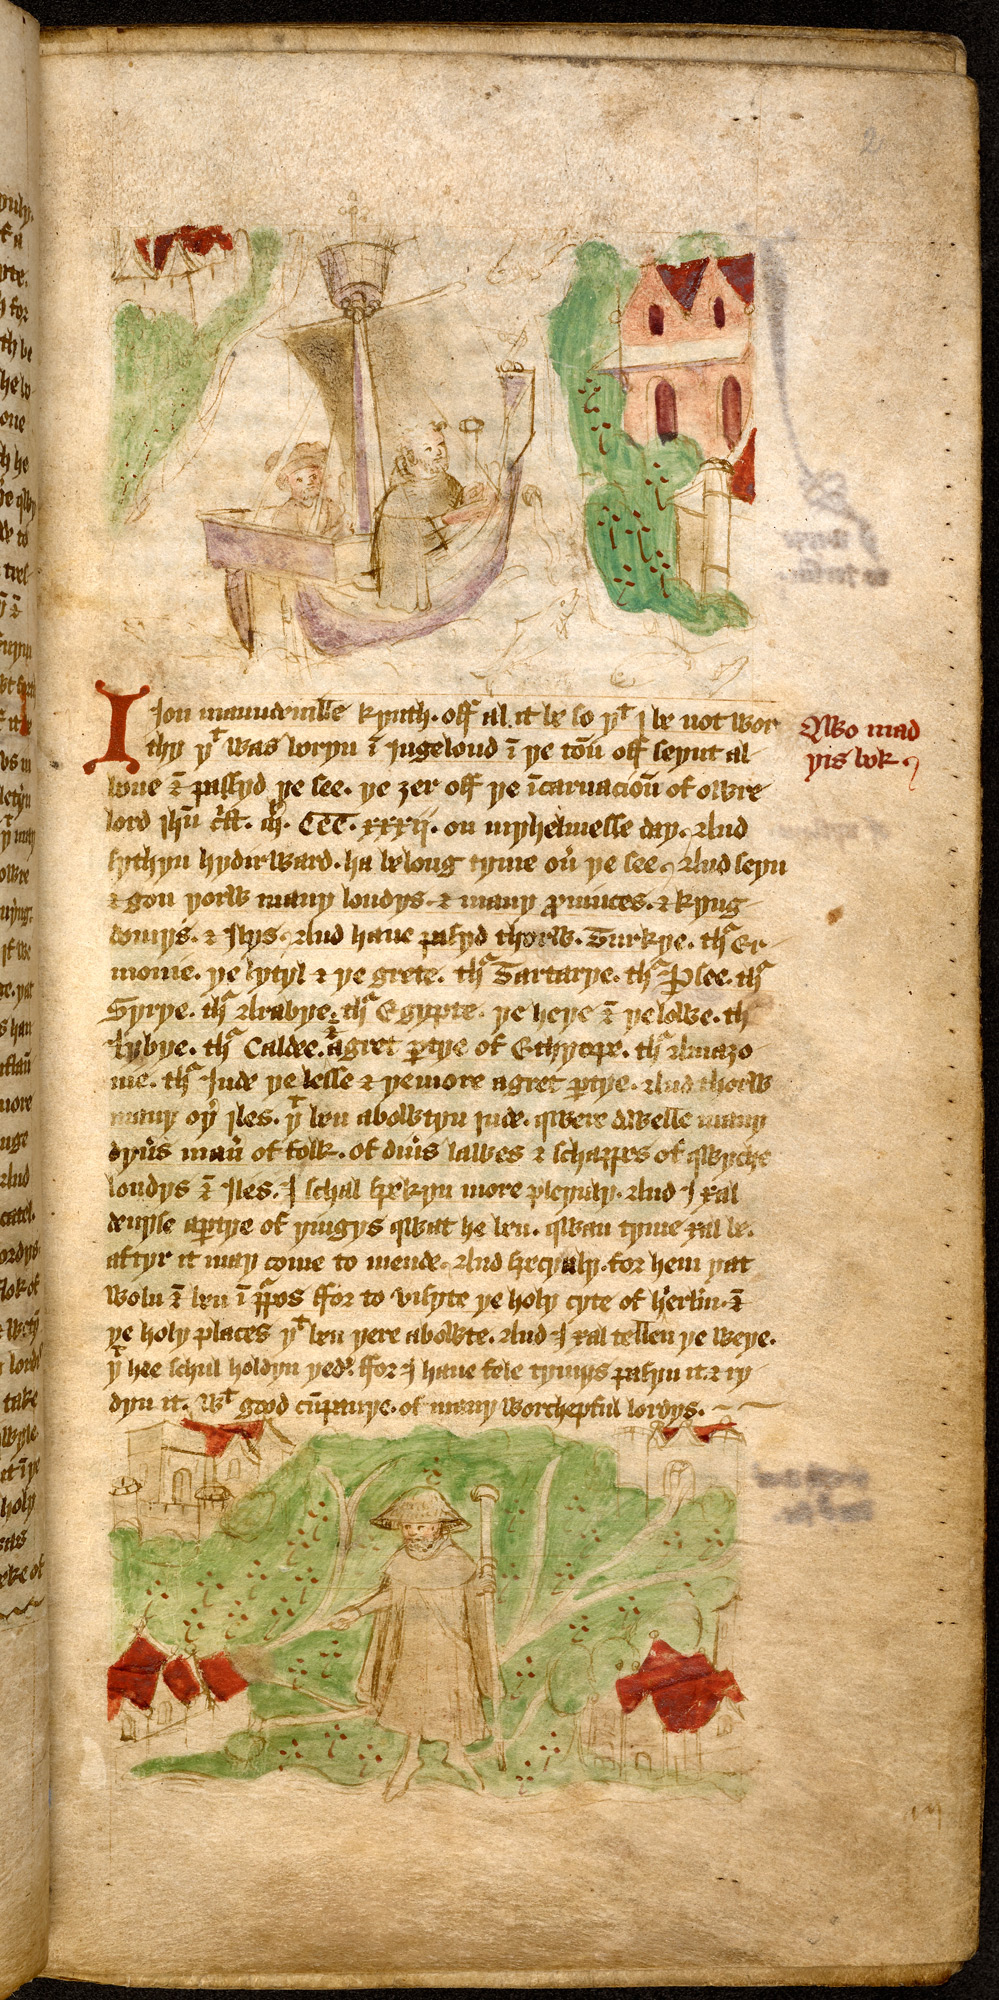 I Jon maundeuile knyth. off al it be so yͭ I be not wor
thy yͭ was boryn ī Jngelond ī ye toū off seynt al
bone & passyd ye see. ye ȝer off ye īcarnacioū of owre
lord jhū c̄st. m̊. CCC. xxxij. on myhelmesse day. And
sythyn hydirward. ha be long tyme oū ye see. And seyn
& gon yorw many londys. & many ꝓuinces. & kyng
domys. & Ilys. And haue passyd thorw. Turkye. thͬ Er
monie. ye lytyl & ye grete. thͬ Tartarye. thͬ Persee. thͬ
Syrye. thͬ Arabye. thͬ Egypte. ye heye & ye lowe. thͬ
lybye. thͬ Caldee. & a gret ꝑtye of Ethyope. thͬ Amazo
nie. thͬ Jnde ye lesse & ye more a gret ꝑtye. And thorw
many oyͬ Iles. yͭ ben abowtyn Jnde. qwere dwelle many
dyūs maū of folk. of diūs lawes & schappes of qwyche
londys & Iles. I schal spekyn more pleynly. And I xal
deuyse a ꝑtye of yingys qwat he ben. qwan tyme xal be.
aftyr it may come to mende. And specyaly. for hem yat
woln & ben ī pͬpos ffor to visyte ye holy cyte of Jherlm. &
ye holy places yͭ ben yere abowte. And I xal tellen ye weye.
yͭ hee schul holdyn yedͬ. ffor I haue fele tymys passyn it. & ry
dyn it. Wͭ good cūpanye. of many worchepful lordys.
Qwo mad
yis bok
2